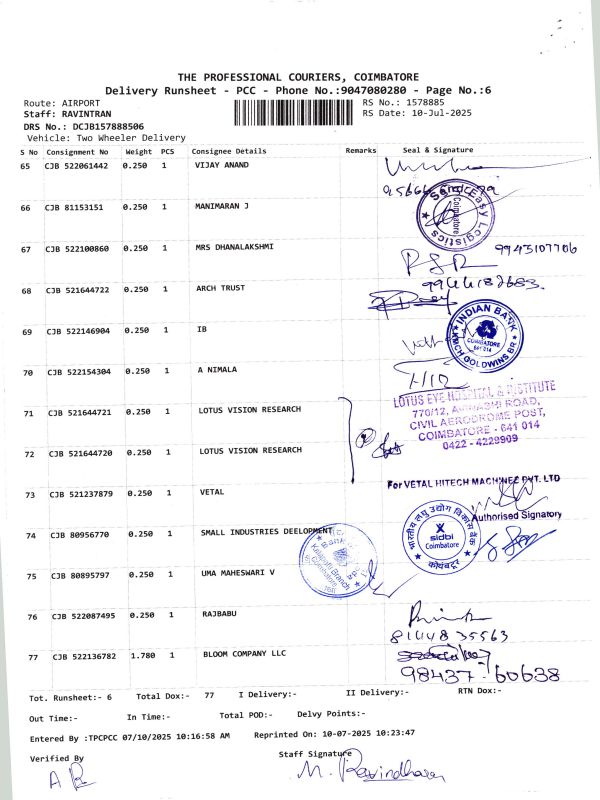 THE PROFESSIONAL COURIERS, COIMBATORE
Delivery Runsheet - PCC - Phone No.:9047080280 - Page No.:6
Route: AIRPORT RS No.: 1578885
Staff: RAVINTRAN RS Date: 10-Jul-2025
DRS No.: DCJB157888506
Vehicle: Two Wheeler Delivery
S No Consignment No Weight PCS Consignee Details Remarks Seal & Signature
65 CJB 522061442 0.250 1 VIJAY ANAND
SendEasy Logistics Coimbatore
66 CJB 81153151 0.250 1 MANIMARAN J
67 CJB 522100860 0.250 1 MRS DHANALAKSHMI 9943107706
68 CJB 521644722 0.250 1 ARCH TRUST 9944182683.
69 CJB 522146904 0.250 1 IB
INDIAN BANK
COIMBATORE
641 014
GOLDWINS BR
70 CJB 522154304 0.250 1 A NIMALA
71 CJB 521644721 0.250 1 LOTUS VISION RESEARCH
LOTUS EYE HOSPITAL & INSTITUTE
770/12, AVINASHI ROAD,
CIVIL AERODROME POST,
COIMBATORE - 641 014
0422 - 4229909
72 CJB 521644720 0.250 1 LOTUS VISION RESEARCH
73 CJB 521237879 0.250 1 VETAL
For VETAL HITECH MACHINEZ PVT. LTD
Authorised Signatory
74 CJB 80956770 0.250 1 SMALL INDUSTRIES DEELOPMENT
भारतीय लघु उद्योग विकास बैंक
sidbi
Coimbatore
कोयंबटूर
75 CJB 80895797 0.250 1 UMA MAHESWARI V
Bank
Kalapatti Branch
Coimbatore
76 CJB 522087495 0.250 1 RAJBABU
8144835563
77 CJB 522136782 1.780 1 BLOOM COMPANY LLC
98437-60638
Tot. Runsheet:- 6 Total Dox:- 77 I Delivery:- II Delivery:- RTN Dox:-
Out Time:- In Time:- Total POD:- Delvy Points:-
Entered By :TPCPCC 07/10/2025 10:16:58 AM Reprinted On: 10-07-2025 10:23:47
Verified By Staff Signature
M. Ravindharan